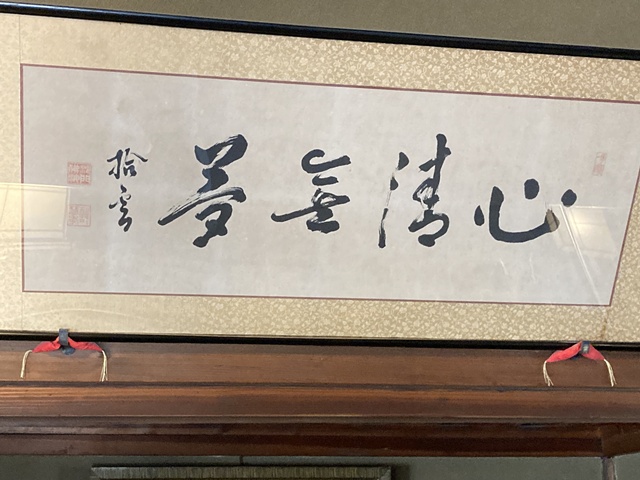 心清無夢
拾雲